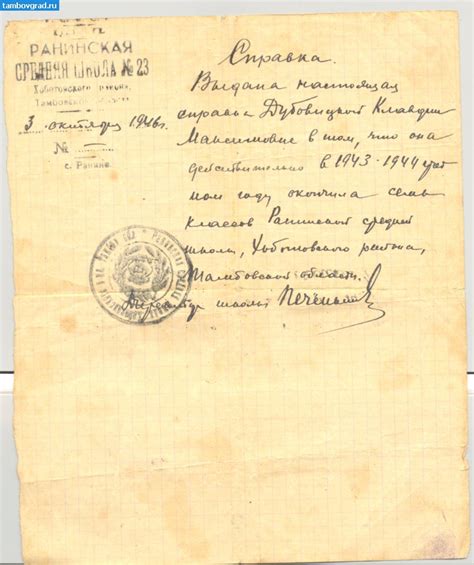 tambovgrad.ru
РАНИНСКАЯ
СРЕДНЯЯ ШКОЛА № 23
Хоботовского района,
Тамбовской
3 октября 1946 г.
№
с. Ранино
Справка.
Выдана настоящая
справка Дубовицкой Клавдии
Максимовне в том, что она
действительно в 1943-1944 учеб
ном году окончила семь
классов Ранинской средней
школы, Хоботовского района,
Тамбовской области.
Директор школы